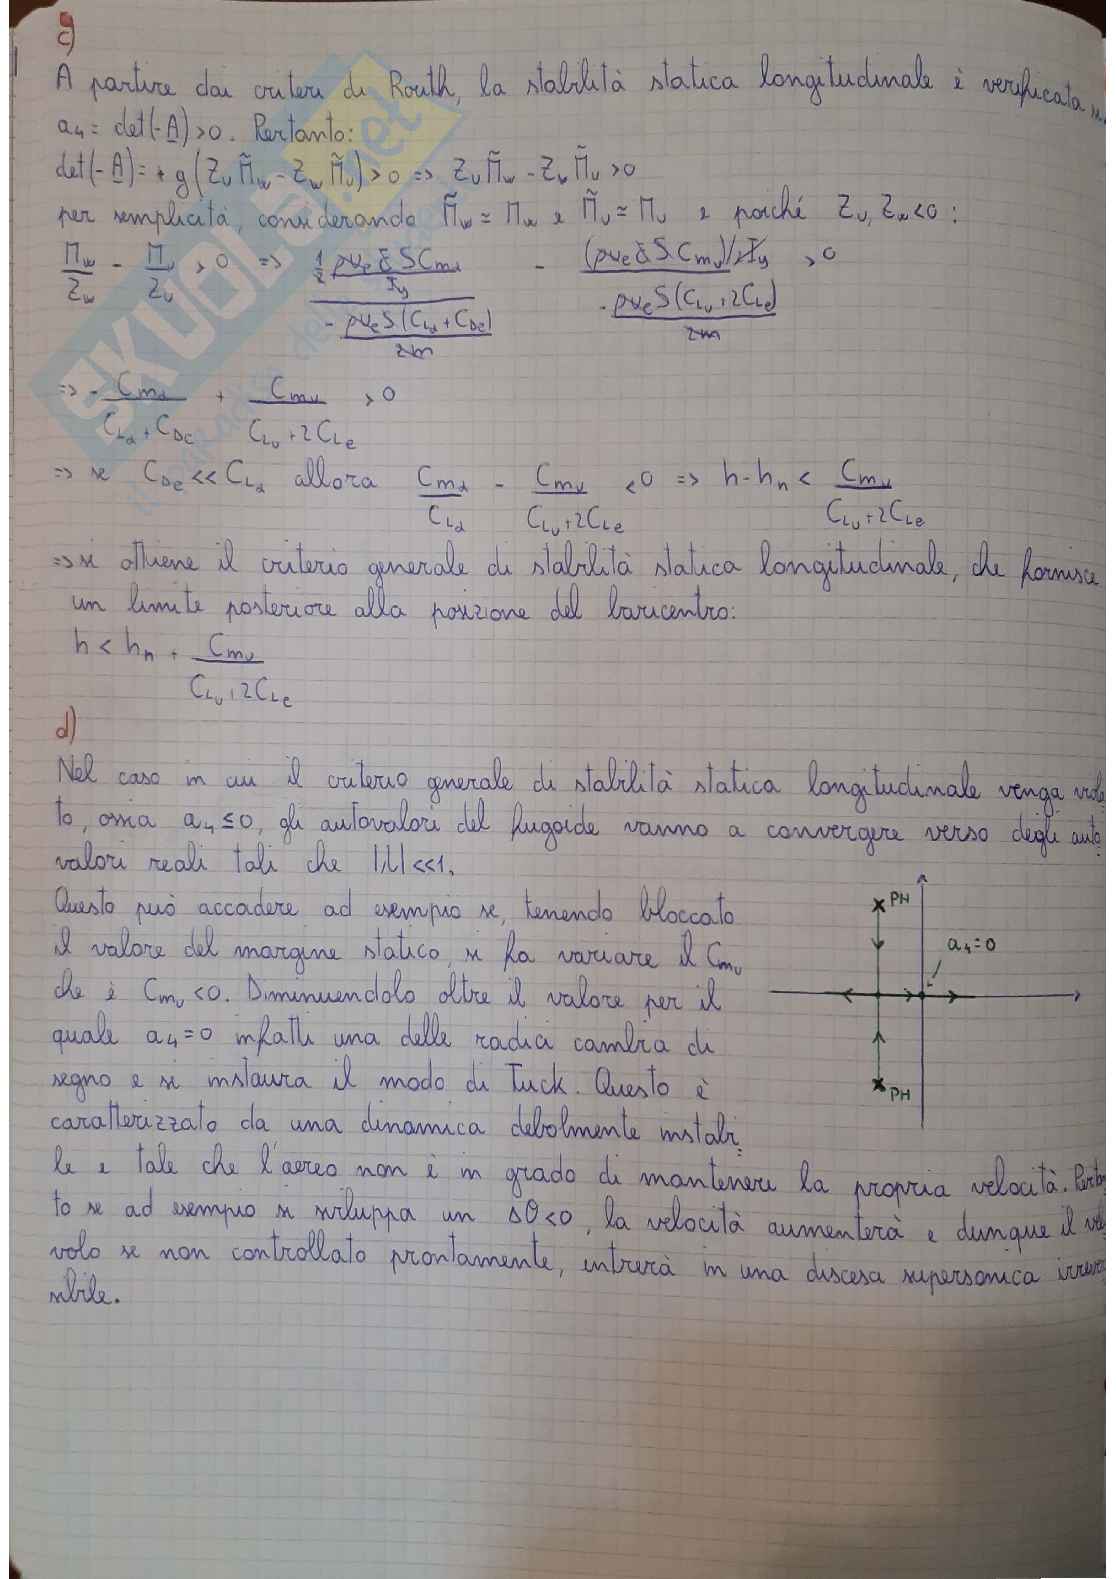 c)
A partire dai criteri di Routh, la stabilità statica longitudinale è verificata
a₄ = det(-A) > 0. Pertanto:
det(-A) = + g(Zᵤ M̃w - Zw M̃ᵤ) > 0 => Zᵤ M̃w - Zw M̃ᵤ > 0
per semplicità, considerando M̃w ≃ Mw e M̃ᵤ ≃ Mᵤ e poiché Zᵤ, Zw < 0 :
Mw/Zw - Mᵤ/Zᵤ > 0 => (½ ρuₑ c̄ S Cmα / Iy) / (- ρuₑS(CLα + CDe) / 2m) - ((ρuₑ c̄ S Cmᵤ)/2Iy) / (- ρuₑS(CLᵤ + 2CLe) / 2m) > 0
=> - Cmα / (CLα + CDe) + Cmᵤ / (CLᵤ + 2CLe) > 0
=> se CDe << CLα allora Cmα / CLα - Cmᵤ / (CLᵤ + 2CLe) < 0 => h - hn < Cmᵤ / (CLᵤ + 2CLe)
=> si ottiene il criterio generale di stabilità statica longitudinale, che fornisce
un limite posteriore alla posizione del baricentro:
h < hn + Cmᵤ / (CLᵤ + 2CLe)
d)
Nel caso in cui il criterio generale di stabilità statica longitudinale venga viola
to, ossia a₄ ≤ 0, gli autovalori del fugoide vanno a convergere verso degli auto
valori reali tali che |λ| << 1.
Questo può accadere ad esempio se, tenendo bloccato
il valore del margine statico, si fa variare il Cmᵤ
che è Cmᵤ < 0. Diminuendolo oltre il valore per il
quale a₄ = 0 infatti una delle radici cambia di
segno e si instaura il modo di Tuck. Questo è
caratterizzato da una dinamica debolmente instabi
le e tale che l'aereo non è in grado di mantenere la propria velocità. Pertan
to se ad esempio si sviluppa un Δθ < 0, la velocità aumenterà e dunque il ve
volo se non controllato prontamente, entrerà in una discesa supersonica irrever
sibile.
PH
a₄ = 0
PH
SKUOLA.net